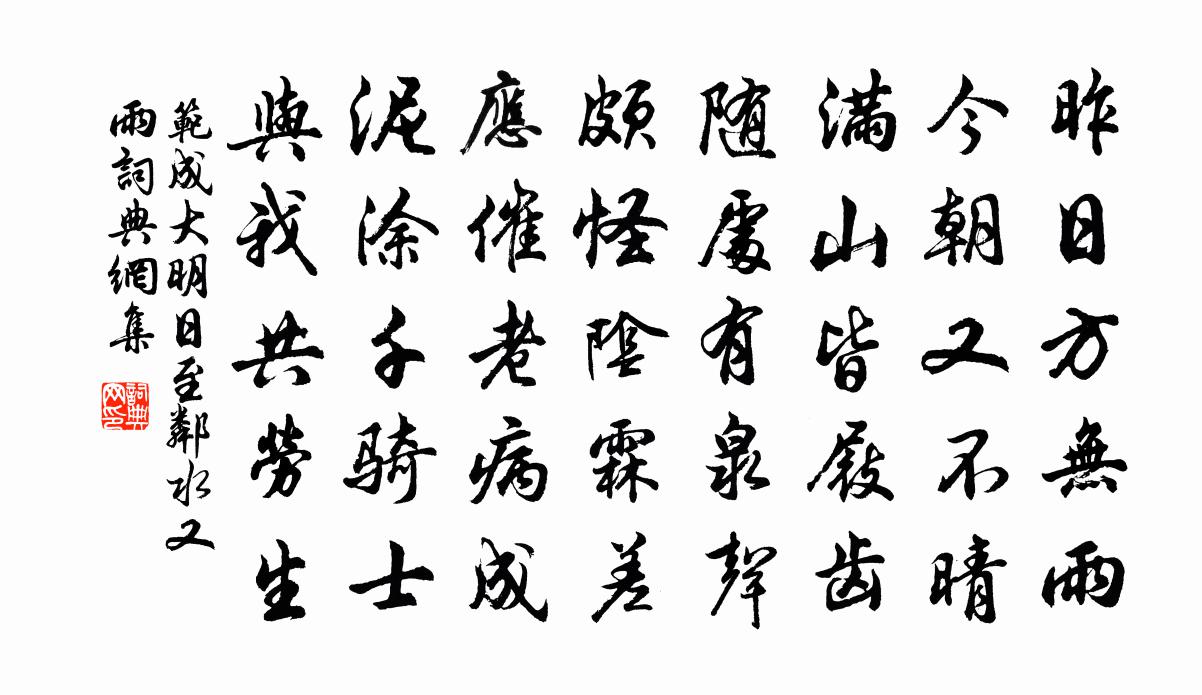 昨日方無雨
今朝又不晴
滿山皆屐齒
随處有泉聲
頗怪陰霖差
應催老病成
泥涂千騎士
與我共勞生
範成大明日至鄰水又
雨詞典網集
詞典
网印